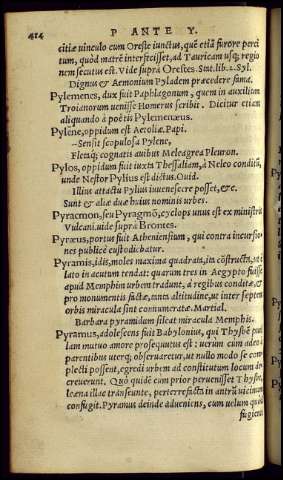 414 P ANTE Y.
citiæ uinculo cum Oreste iunctus, quē etiā furore perci
tum, quòd matrē interfecisset, ad Tauricam usq; regio
nem secutus est. Vide suprà Orestes. Stat. lib. 2. Syl.
Dignus & Aemonium Pyladem præcedere fama.
Pylemenes, dux fuit Paphlagonum, quem in auxilium
Troianorum uenisse Homerus scribit. Dicitur etiam
aliquando à poëtis Pylemenæus.
Pylene, oppidum est Aetoliæ. Papi.
—Sensit scopulosa Pylene,
Fletaq; cognatis auibus Meleagrea Pleuron.
Pylos, oppidum fuit iuxta Thessaliam, à Neleo conditū,
unde Nestor Pylius est dictus. Ouid.
Illius attactu Pylius iuuenescere posset, &c.
Sunt & aliæ duæ huius nominis urbes.
Pyracmon, seu Pyragmō, cyclops unus est ex ministris
Vulcani. uide suprà Brontes.
Pyræus, portus fuit Atheniensium, qui contra incursio-
nes publicè custodiebatur.
Pyramis, idis, moles maxima quadrata, in cōstructa, ut
lato in acutum tendat: quarum tres in Aegypto fuisse
apud Memphin urbem tradunt, à regibus conditæ, &
pro monumentis factæ, tanta altitudine, ut inter septem
orbis miracula sint connumeratæ. Martial.
Barbara pyramidum sileat miracula Memphis.
Pyramus, adolescens fuit Babylonius, qui Thysbē puel
lam mutuo amore prosequutus est: uerum cum adeo
parentibus uterq; obseruaretur, ut nullo modo se com
plecti possent, egredi urbem ad constitutum locum de
creuerunt. Quò quidē cum prior peruenisset Thysbe,
leæna illac transeunte, perterrefacta in antrū uicinum
confugit. Pyramus deinde adueniens, cum uelum quod
fugiens